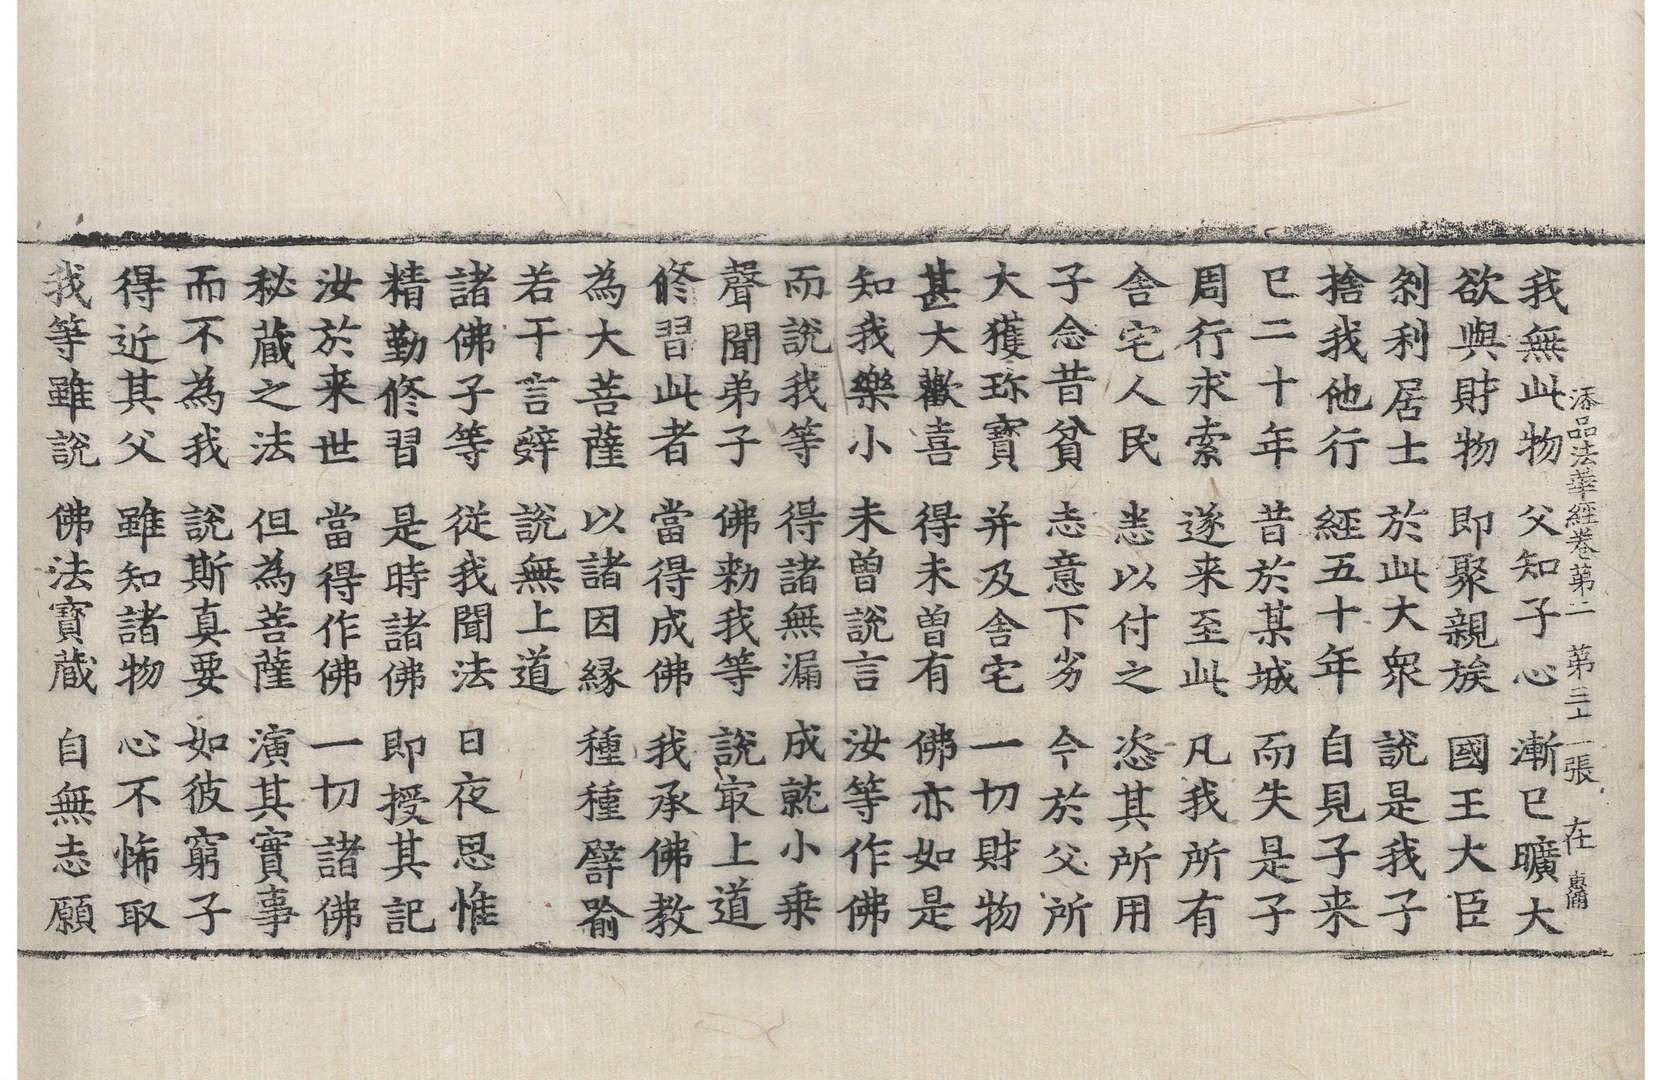 添品法華經卷第二 第三十一張 在
我無此物 父知子心 漸已曠大
欲與財物 即聚親族 國王大臣
剎利居士 於此大衆 說是我子
捨我他行 經五十年 自見子来
已二十年 昔於某城 而失是子
周行求索 遂来至此 凡我所有
舍宅人民 悉以付之 恣其所用
子念昔貧 志意下劣 今於父所
大獲珎寶 并及舍宅 一切財物
甚大歡喜 得未曾有 佛亦如是
知我樂小 未曾說言 汝等作佛
而說我等 得諸無漏 成就小乗
聲聞弟子 佛勑我等 說㝡上道
修習此者 當得成佛 我承佛教
為大菩薩 以諸因緣 種種譬喻
若干言辝 說無上道
諸佛子等 從我聞法 日夜思惟
精勤修習 是時諸佛 即授其記
汝於来世 當得作佛 一切諸佛
秘蔵之法 但為菩薩 演其實事
而不為我 說斯真要 如彼窮子
得近其父 雖知諸物 心不悕取
我等雖說 佛法寶蔵 自無志願